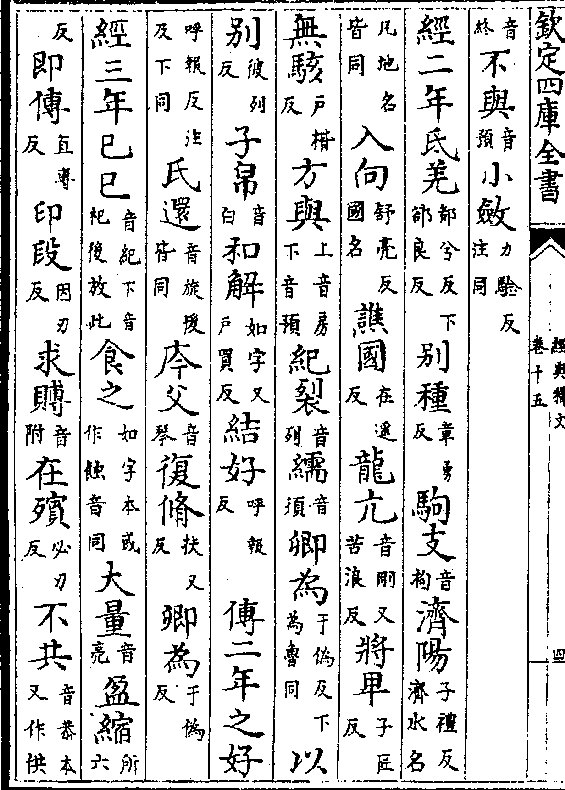 欽定四庫全書
經典釋文
卷十五
四
音終 不與音預 小斂力驗反注同
經二年氐羌都兮反下郤良反 别種章勇反 駒支音拘 濟陽子禮反濟水名
凡地名皆同 入向舒亮反國名 譙國在遥反 龍亢音剛又苦浪反 將甲子匠反
無駭户楷反 方與上音房下音預 紀裂音列 繻音須 卿為于偽反下為魯同 以
别彼列反 子帛音白 和解如字又户買反 結好呼報反 傳二年之好
呼報反注及下同 氐還音旋後皆同 庈父音琴 復脩扶又反 卿為于偽反
經三年己巳音紀下音祀後放此 食之如字本或作蝕音同 大量音亮 盈縮所六
反 即傳直專反 印段因刃反 求賻音附 在殯必刃反 不共音恭本又作供